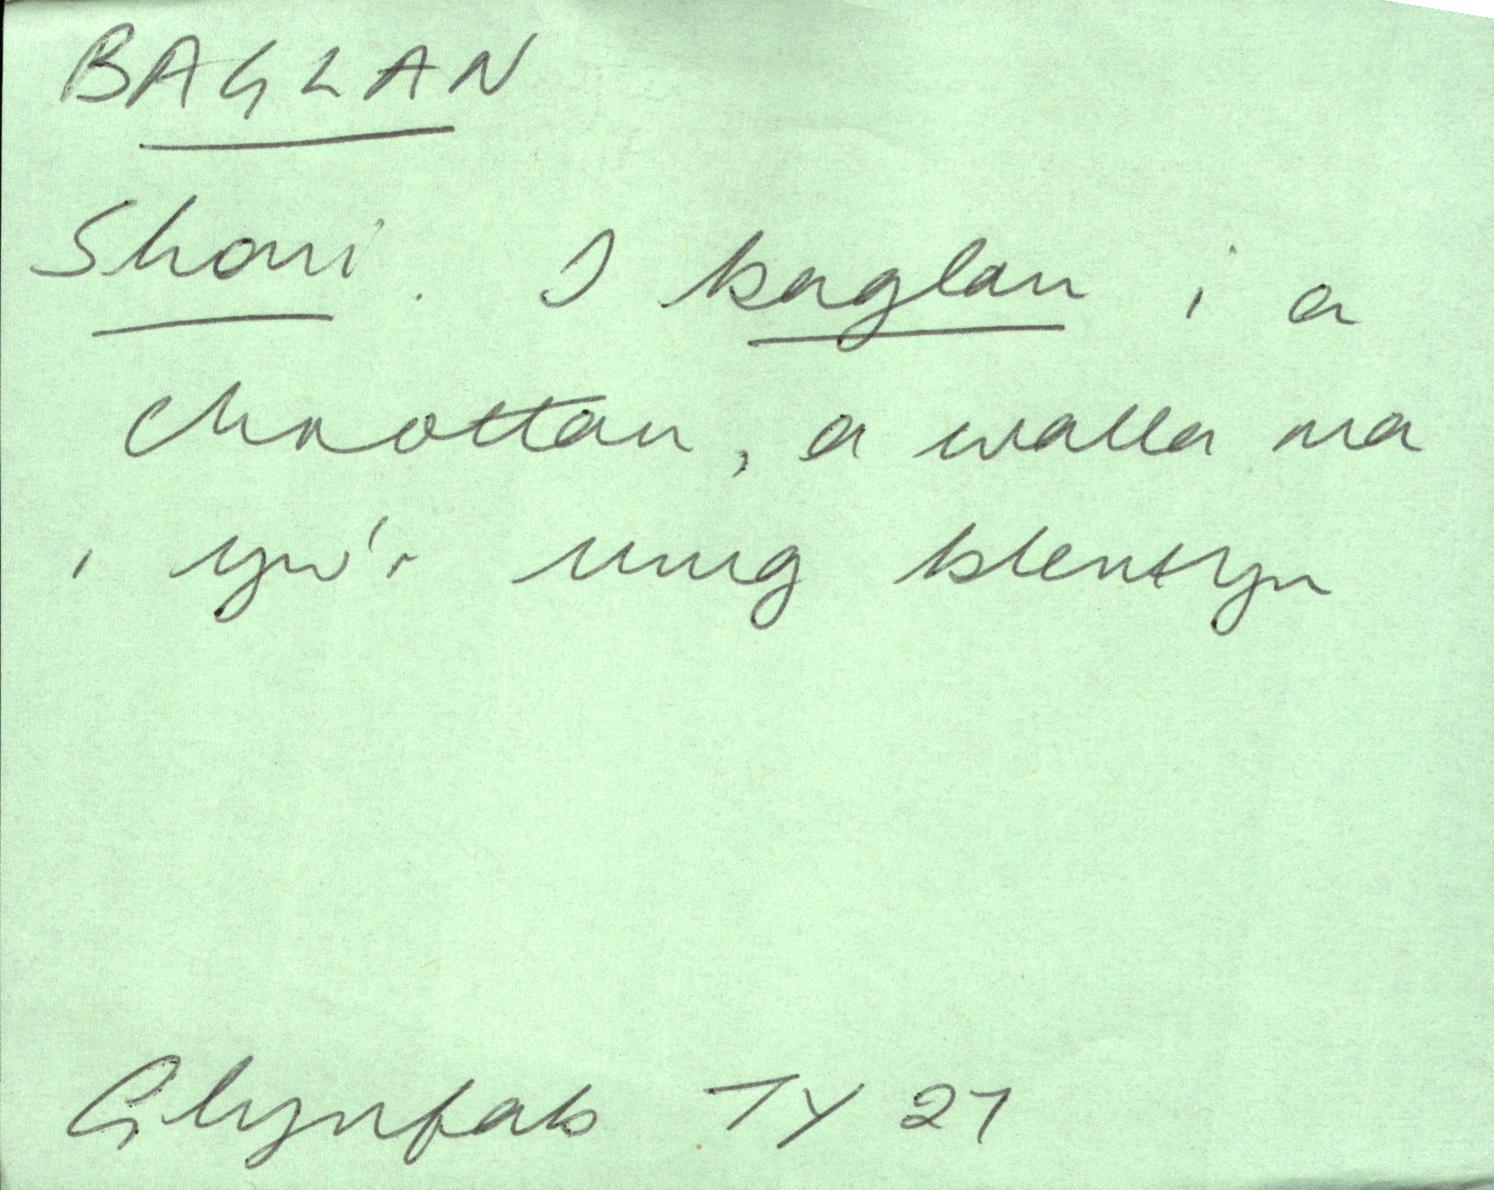 BAGLAN
Shoni. I baglan i a
chrottan, a walla ma
i yw'r unig blentyn
Glynfab TY 21